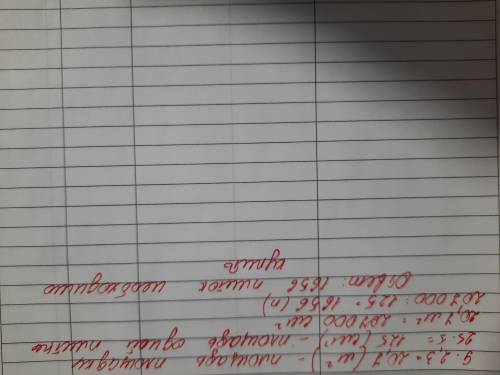 9 · 2,3 = 20,7 (м²) - площадь площадки
25 · 5 = 125 (см²) - площадь одной плитки
20,7 м² = 207 000 см²
207 000 : 125 = 1656 (п)
Ответ: 1656 плиток необходимо
купить